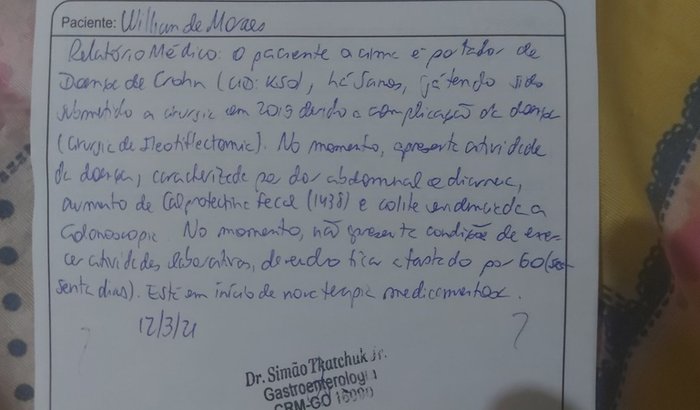 Paciente: Willian de Moraes
Relatório Médico: O paciente acima é portador de
Doença de Crohn (CID: K50), há 5 anos, já tendo sido
submetido a cirurgia em 2019 devido a complicação da doença
(cirurgia de Ileotiflectomia). No momento, apresenta atividade
da doença, caracterizada por dor abdominal e diarreia,
aumento de Calprotectina fecal (1438) e colite a
Colonoscopia. No momento, não apresenta condições de exer-
cer atividades laborativas, devendo ficar afastado por 60 (ses-
senta dias). Está em início de nova terapia medicamentosa.
12/3/21
Dr. Simão Tkatchuk Jr.
Gastroenterologia
CRM-GO